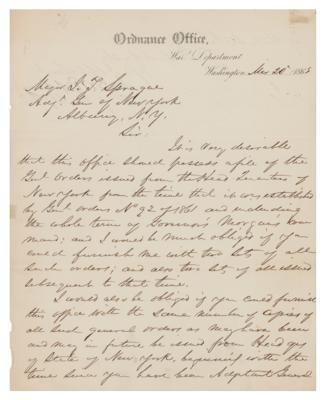 Ordnance Office,
War Department
Washington, Mar 26th 1863
Major J. T. Sprague
Adjt. Gen of New York
Albany, N.Y.
Sir:
It is very desirable
that this office should possess a file of the
Genl Orders issued from the Head Quarters of
New York from the time that it was established
by Genl orders No 92 of 1861 and including
the whole term of Governor Morgan's com
mand; and I would be much obliged if you
could furnish me with two sets of all
such orders; and also two sets of all issued
subsequent to that time.
I would also be obliged if you could furnish
this office with the same number of copies of
all such general orders as may have been
and may in future be issued from Head qrs
of State of New York, beginning with the
time since you have been Adjutant General